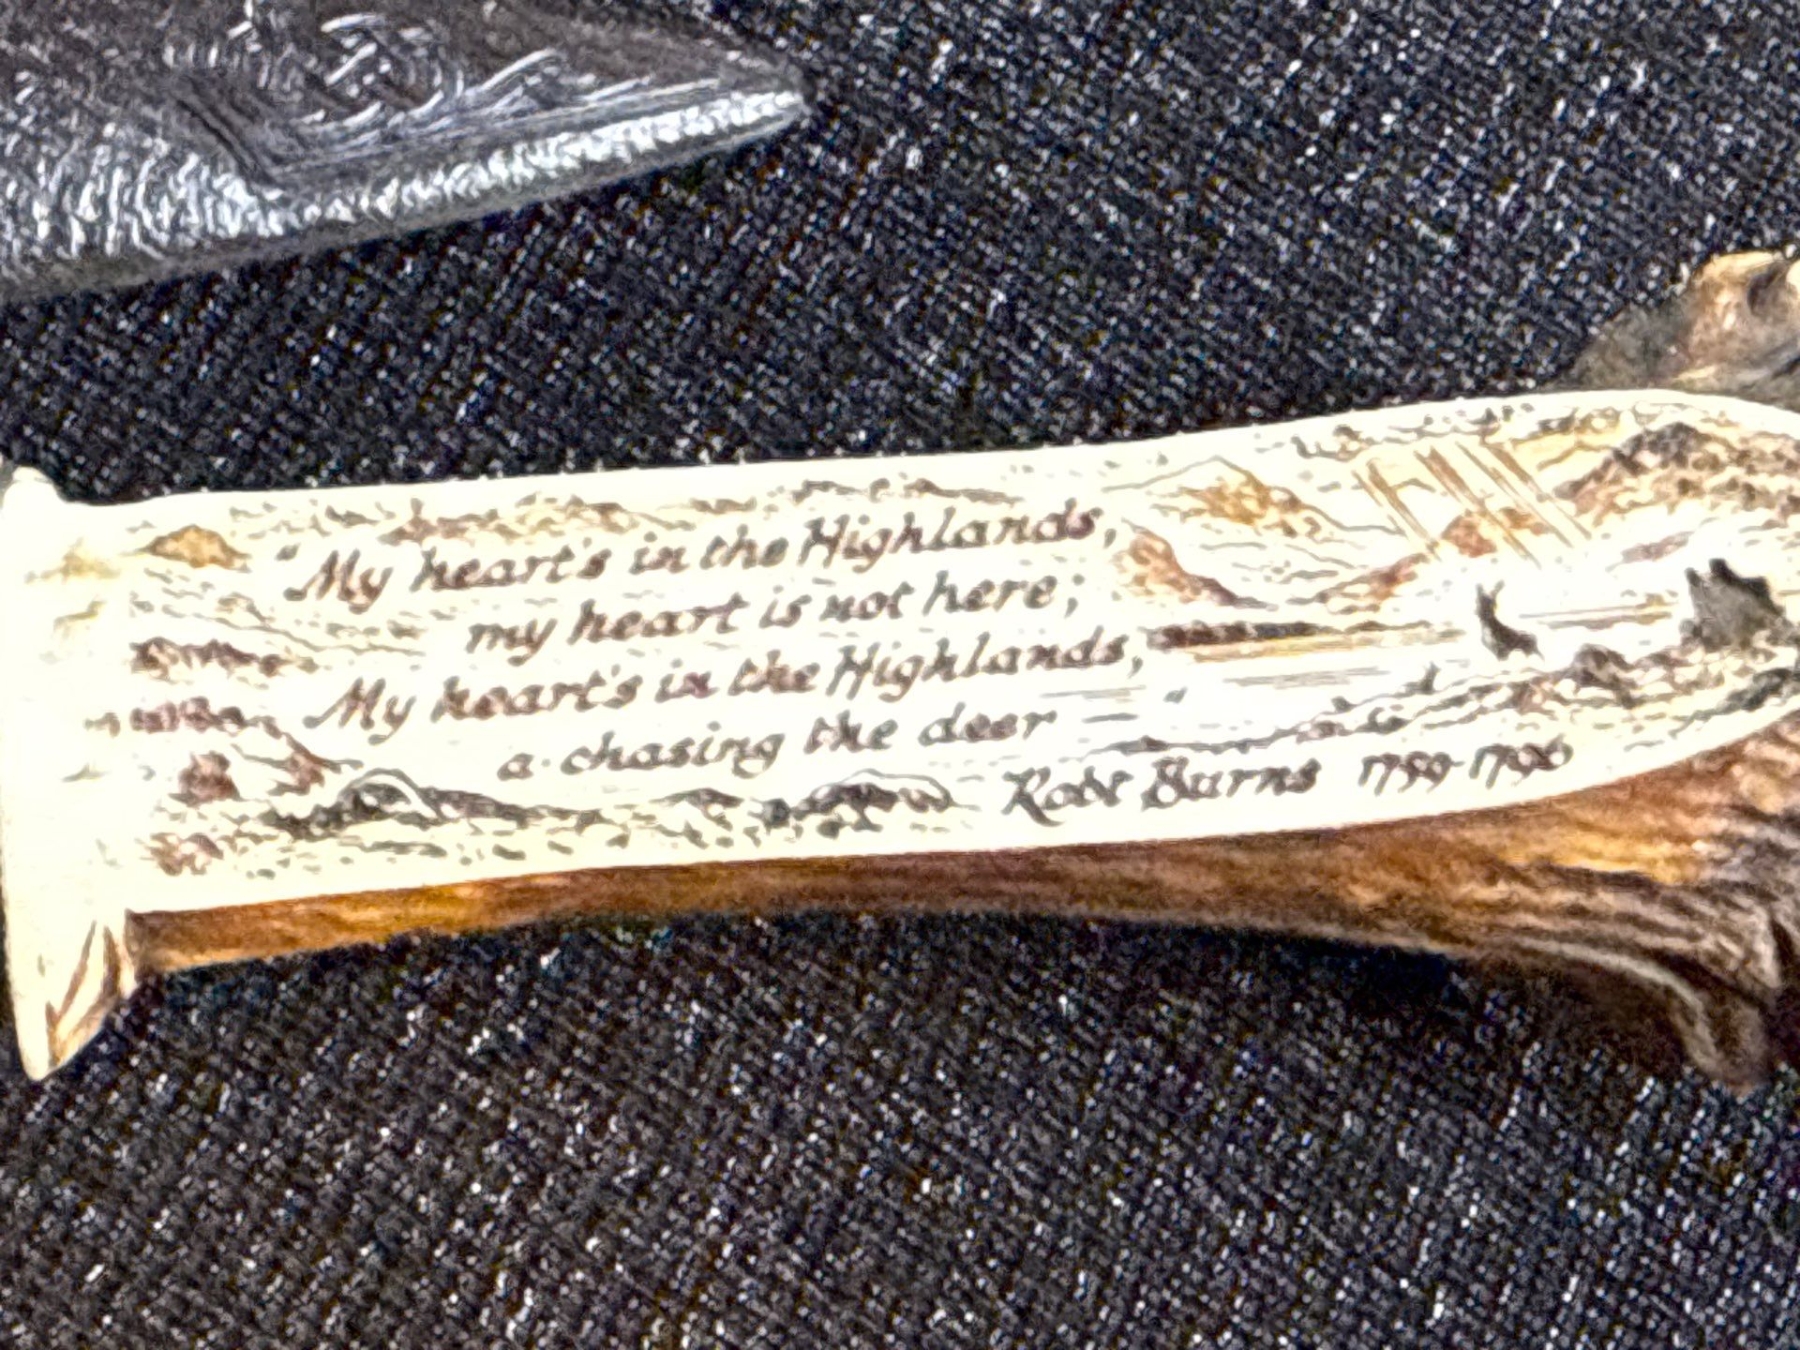 "My heart's in the Highlands,
my heart is not here;
My heart's in the Highlands,
a-chasing the deer — "
Robt Burns 1759-1796